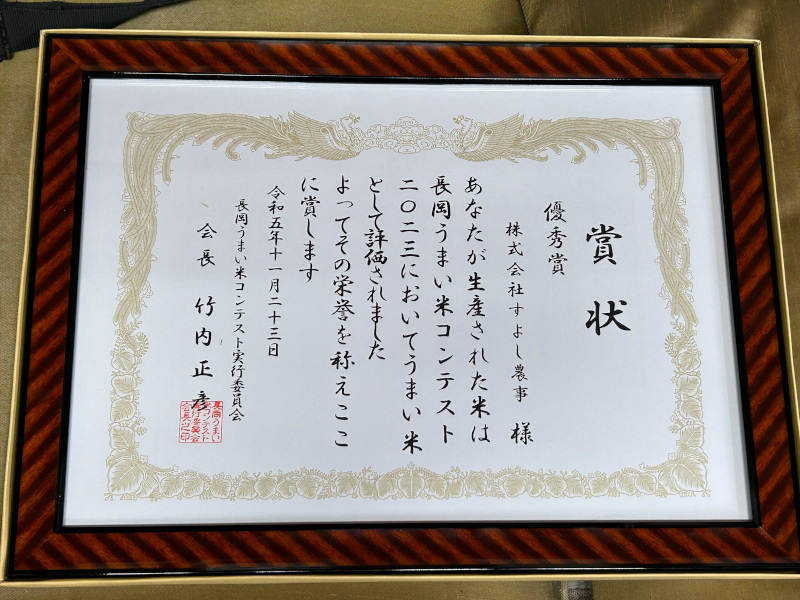 賞状
優秀賞
株式会社すよし農事 様
あなたが生産された米は
長岡うまい米コンテスト
二〇二三においてうまい米
として評価されました
よってその栄誉を称えここ
に賞します
令和五年十一月二十三日
長岡うまい米コンテスト実行委員会
会長 竹内正彦
長岡うまい
米コンテスト
実行委員会
会長之印